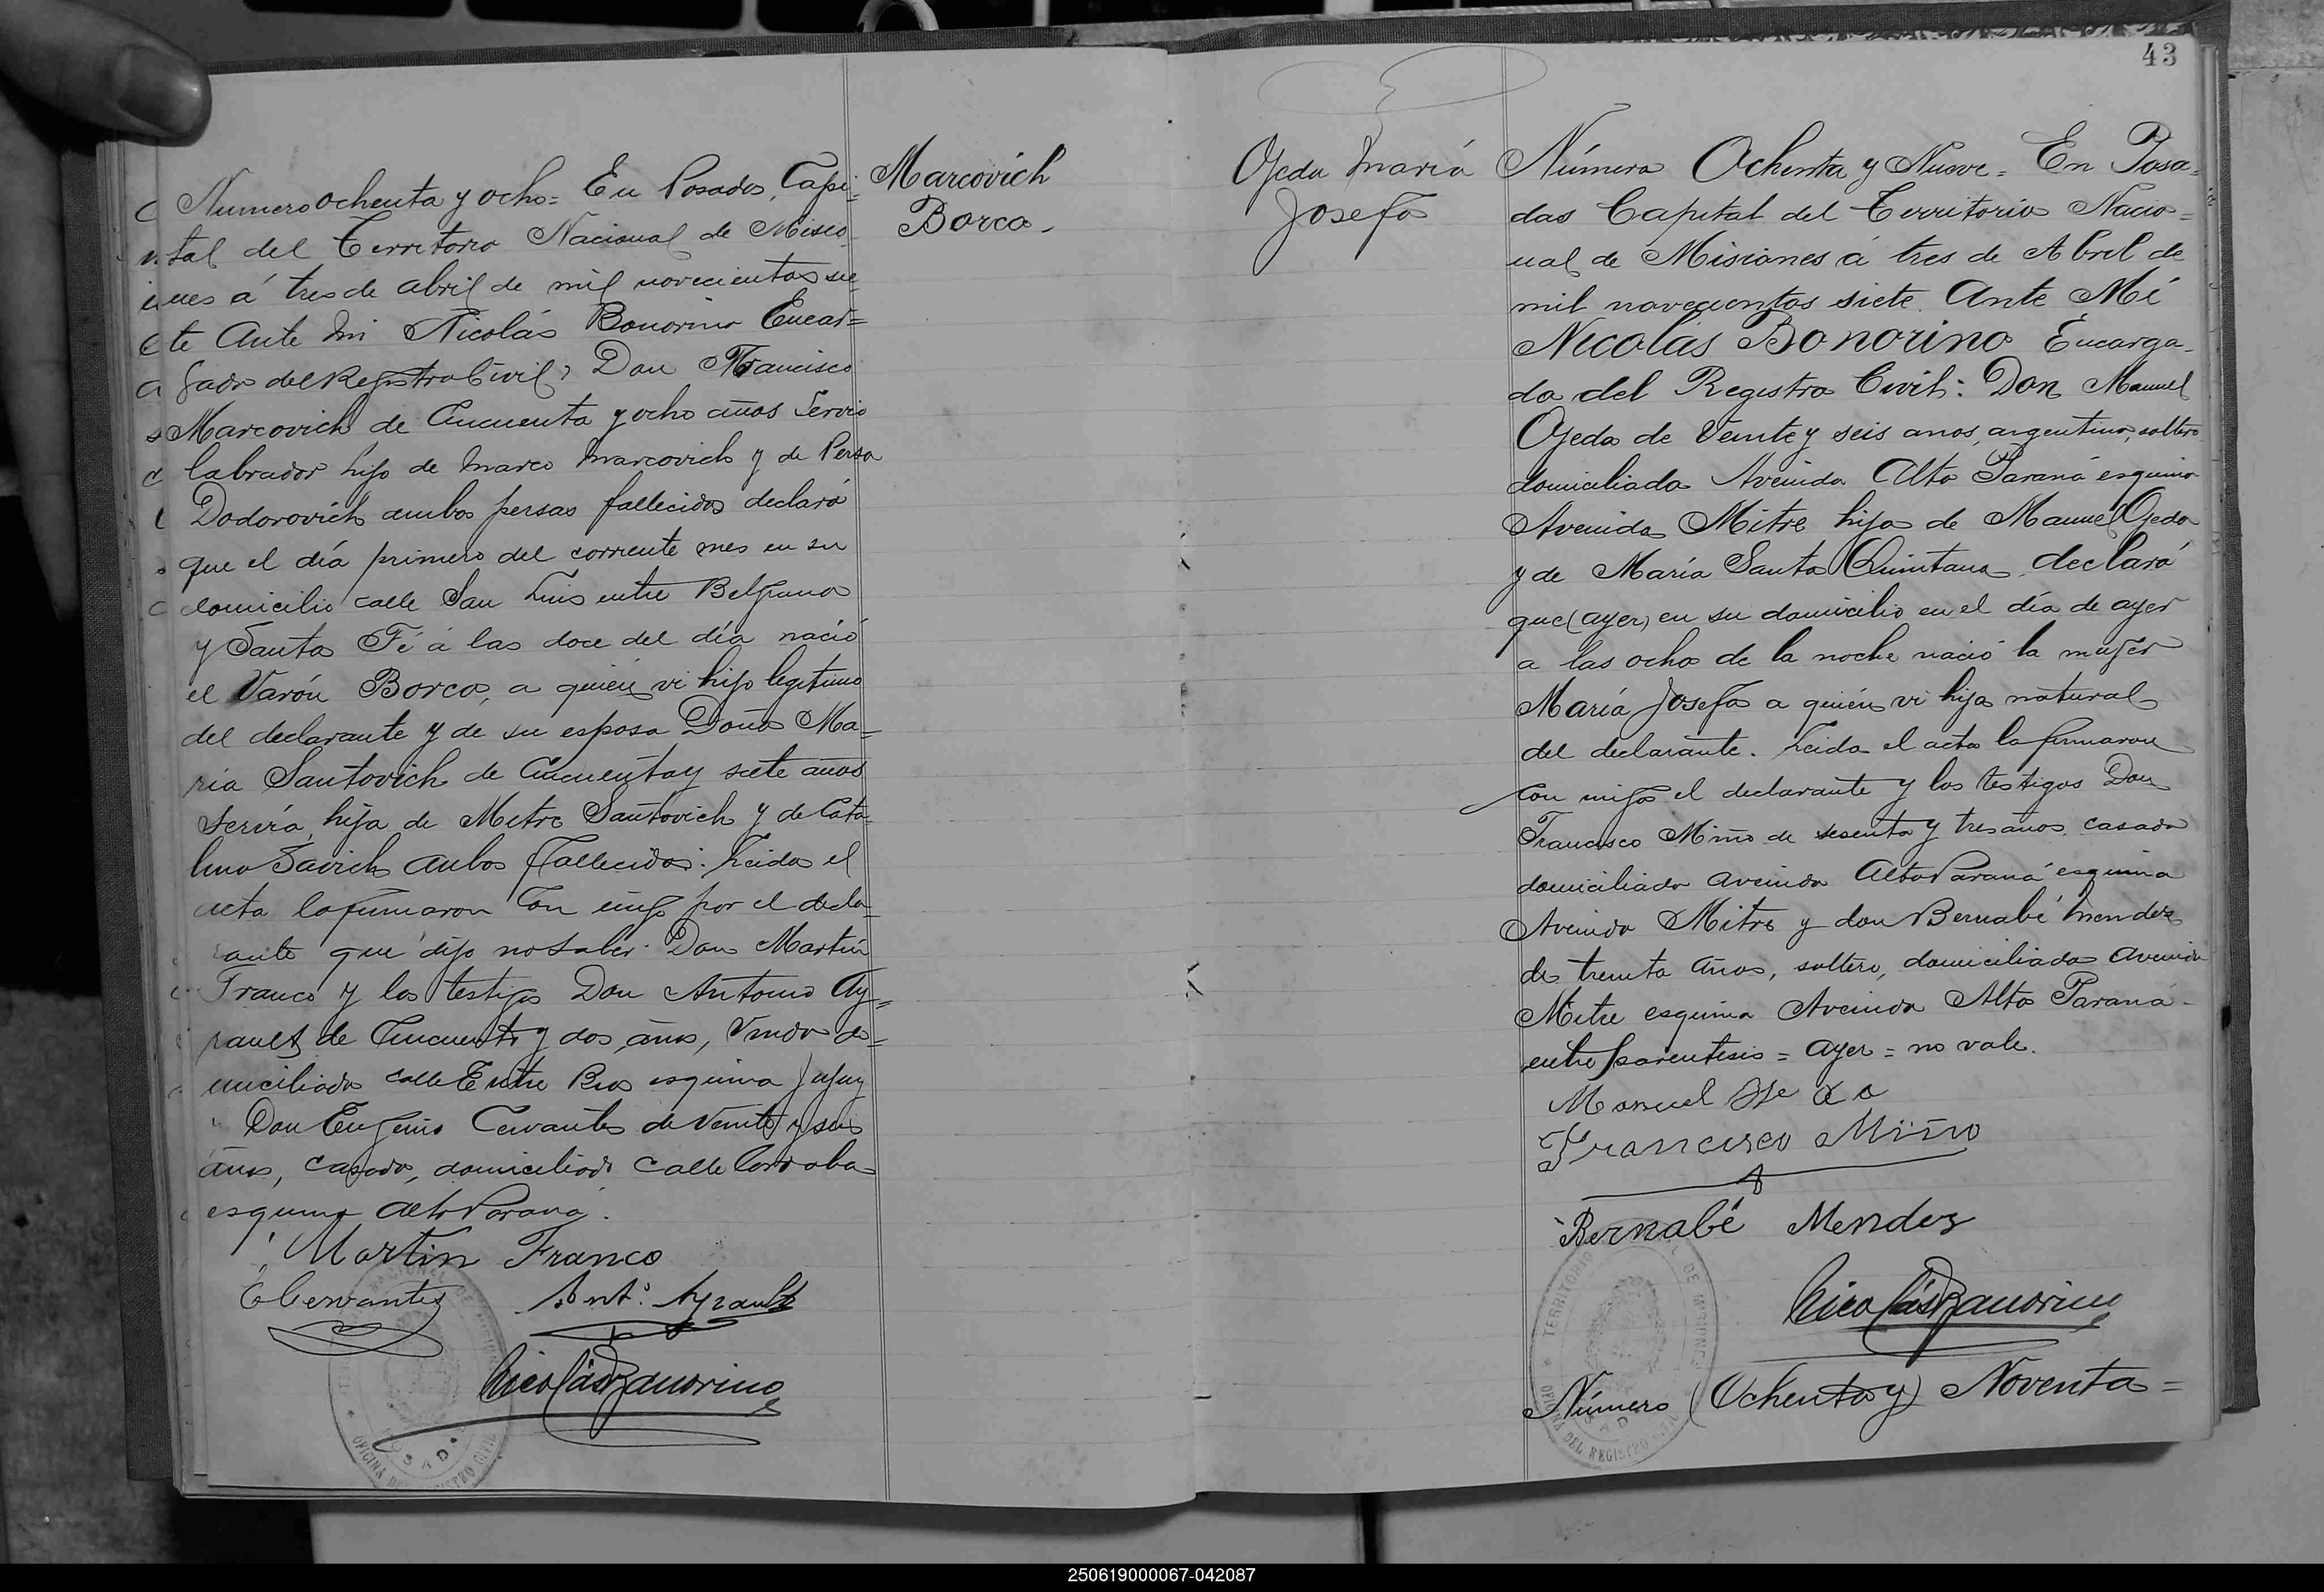 Numero ochenta y ocho = En Posadas, Capi-
tal del Territorio Nacional de Misio
nes á tres de abril de mil novecientos sie
te Ante mi Nicolás Bonorino Encar=
gado del Registro Civil; Don Francisco
Marcovich de Cincuenta y ocho años Servio
labrador hijo de Marco Marcovich y de Persa
Dodorovich ambos persas fallecidos declaró
que el día primero del corriente mes en su
domicilio calle San Luis entre Belgrano
y Santa Fé á las doce del día nació
el Varón Borco, a quién vi hijo legitimo
del declarante y de su esposa Doña Ma-
ria Santovich de Cincuenta y siete años
Servia, hija de Metro Santovich y de Cata
lina Savich ambos fallecidos: Leida el
acta la firmaron con migo por el decla=
rante que dijo no saber Don Martín
Franco y los testigos Don Antonio Ay=
rault de Cincuenta y dos años, Viudo do=
miciliado calle Entre Rios esquina Jujuy
Don Eugenio Cervantes de Veinte y seis
años, casado, domiciliado calle Cordoba
esquina Alto Paraná.
Martin Franco
E Cervantes Ant.º Ayrault
Nicolás Bonorino
Marcovich
Borco.
43
Ojeda María
Josefa
Número Ochenta y Nueve = En Posa=
das Capital del Territorio Nacio=
nal de Misiones á tres de Abril de
mil novecientos siete. Ante Mí
Nicolás Bonorino Encarga-
do del Registro Civil: Don Manuel
Ojeda de Veinte y seis anos, argentino, soltero
domiciliado Avenida Alto Paraná esquina
Avenida Mitre hijo de Manuel Ojeda
y de María Santa Quintana, declaró
que (ayer) en su domicilio en el día de ayer
a las ocho de la noche nació la mujer
María Josefa a quién vi hija natural
del declarante. Leida el acta la firmaron
con migo el declarante y los testigos Don
Francisco Miño de sesenta y tres años, casado
domiciliado avenida Alto Paraná esquina
Avenida Mitre y don Bernabé Mendez
de treinta años, soltero, domiciliado avenida
Mitre esquina Avenida Alto Paraná -
entre parentesis = ayer = no vale.
Manuel Ojeda
Francisco Miño
Bernabé Mendez
Nicolás Bonorino
Número (Ochenta y) Noventa =
TERRITORIO NACIONAL DE MISIONES
OFICINA DEL REGISTRO CIVIL
POSADAS
250619000067-042087